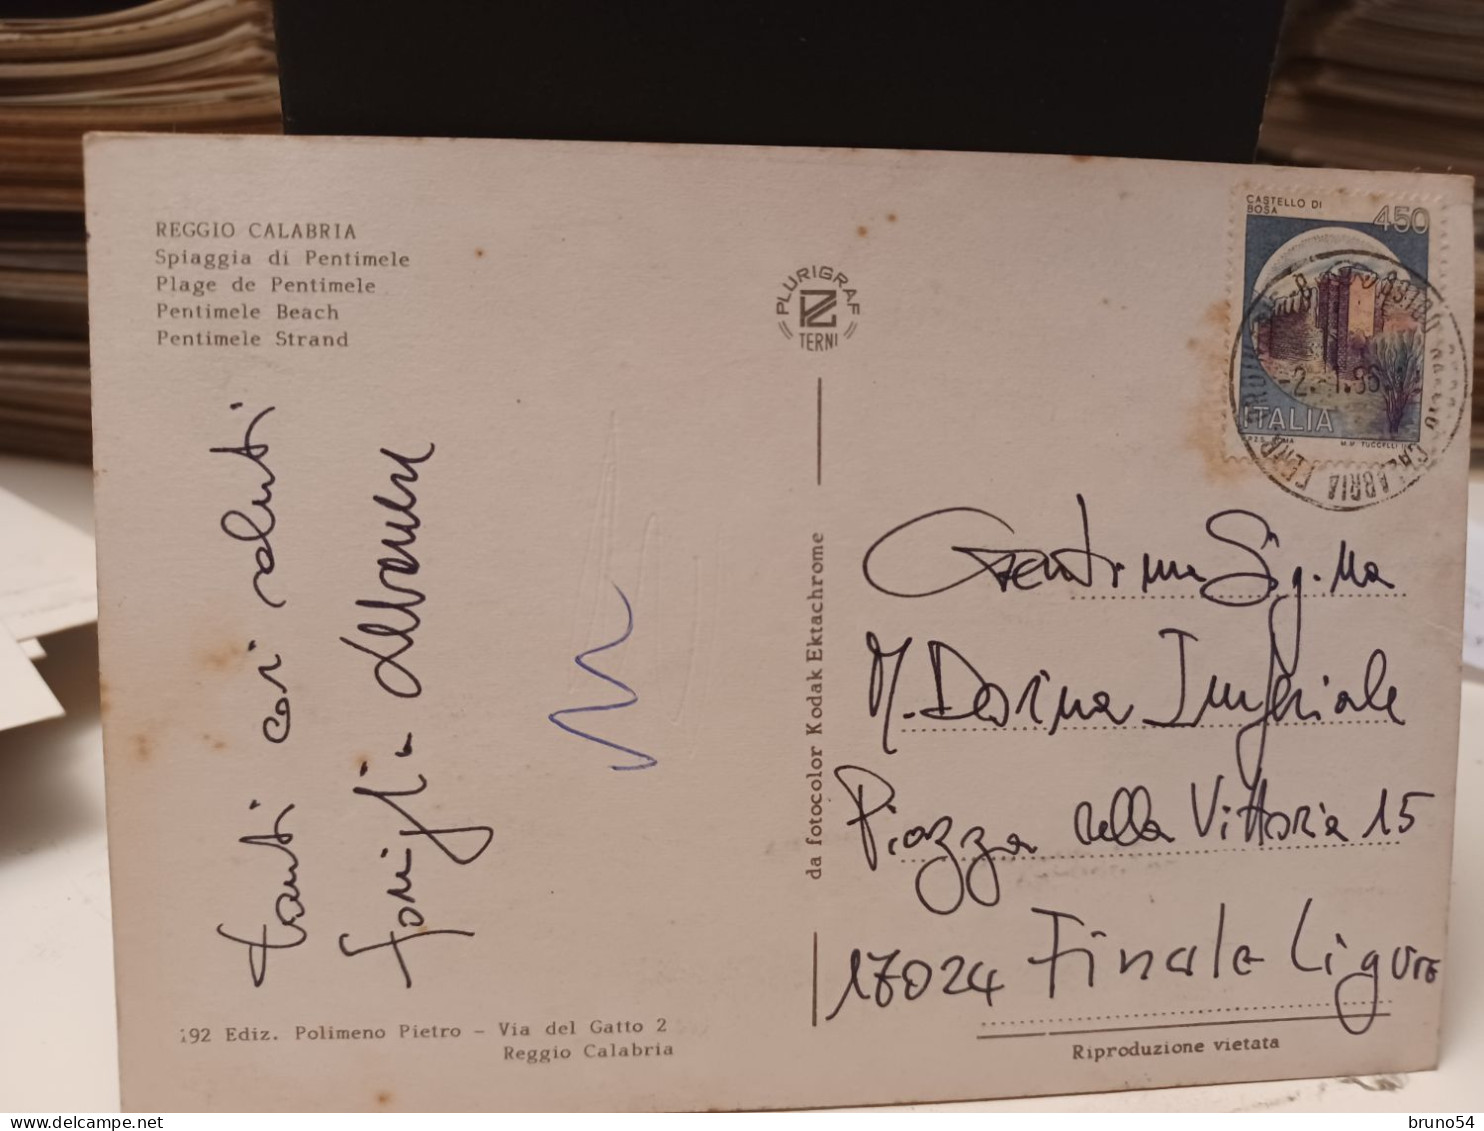 REGGIO CALABRIA
Spiaggia di Pentimele
Plage de Pentimele
Pentimele Beach
Pentimele Strand
tanti cari saluti
famiglia
PLURIGRAF
TERNI
da fotocolor Kodak Ektachrome
CASTELLO DI
BOSA
450
ITALIA
CALABRIA
Gentima Sig.na
M. Dorina Imperiale
Piazza della Vittoria 15
17024 Finale Ligure
92 Ediz. Polimeno Pietro - Via del Gatto 2
Reggio Calabria
Riproduzione vietata
bruno54